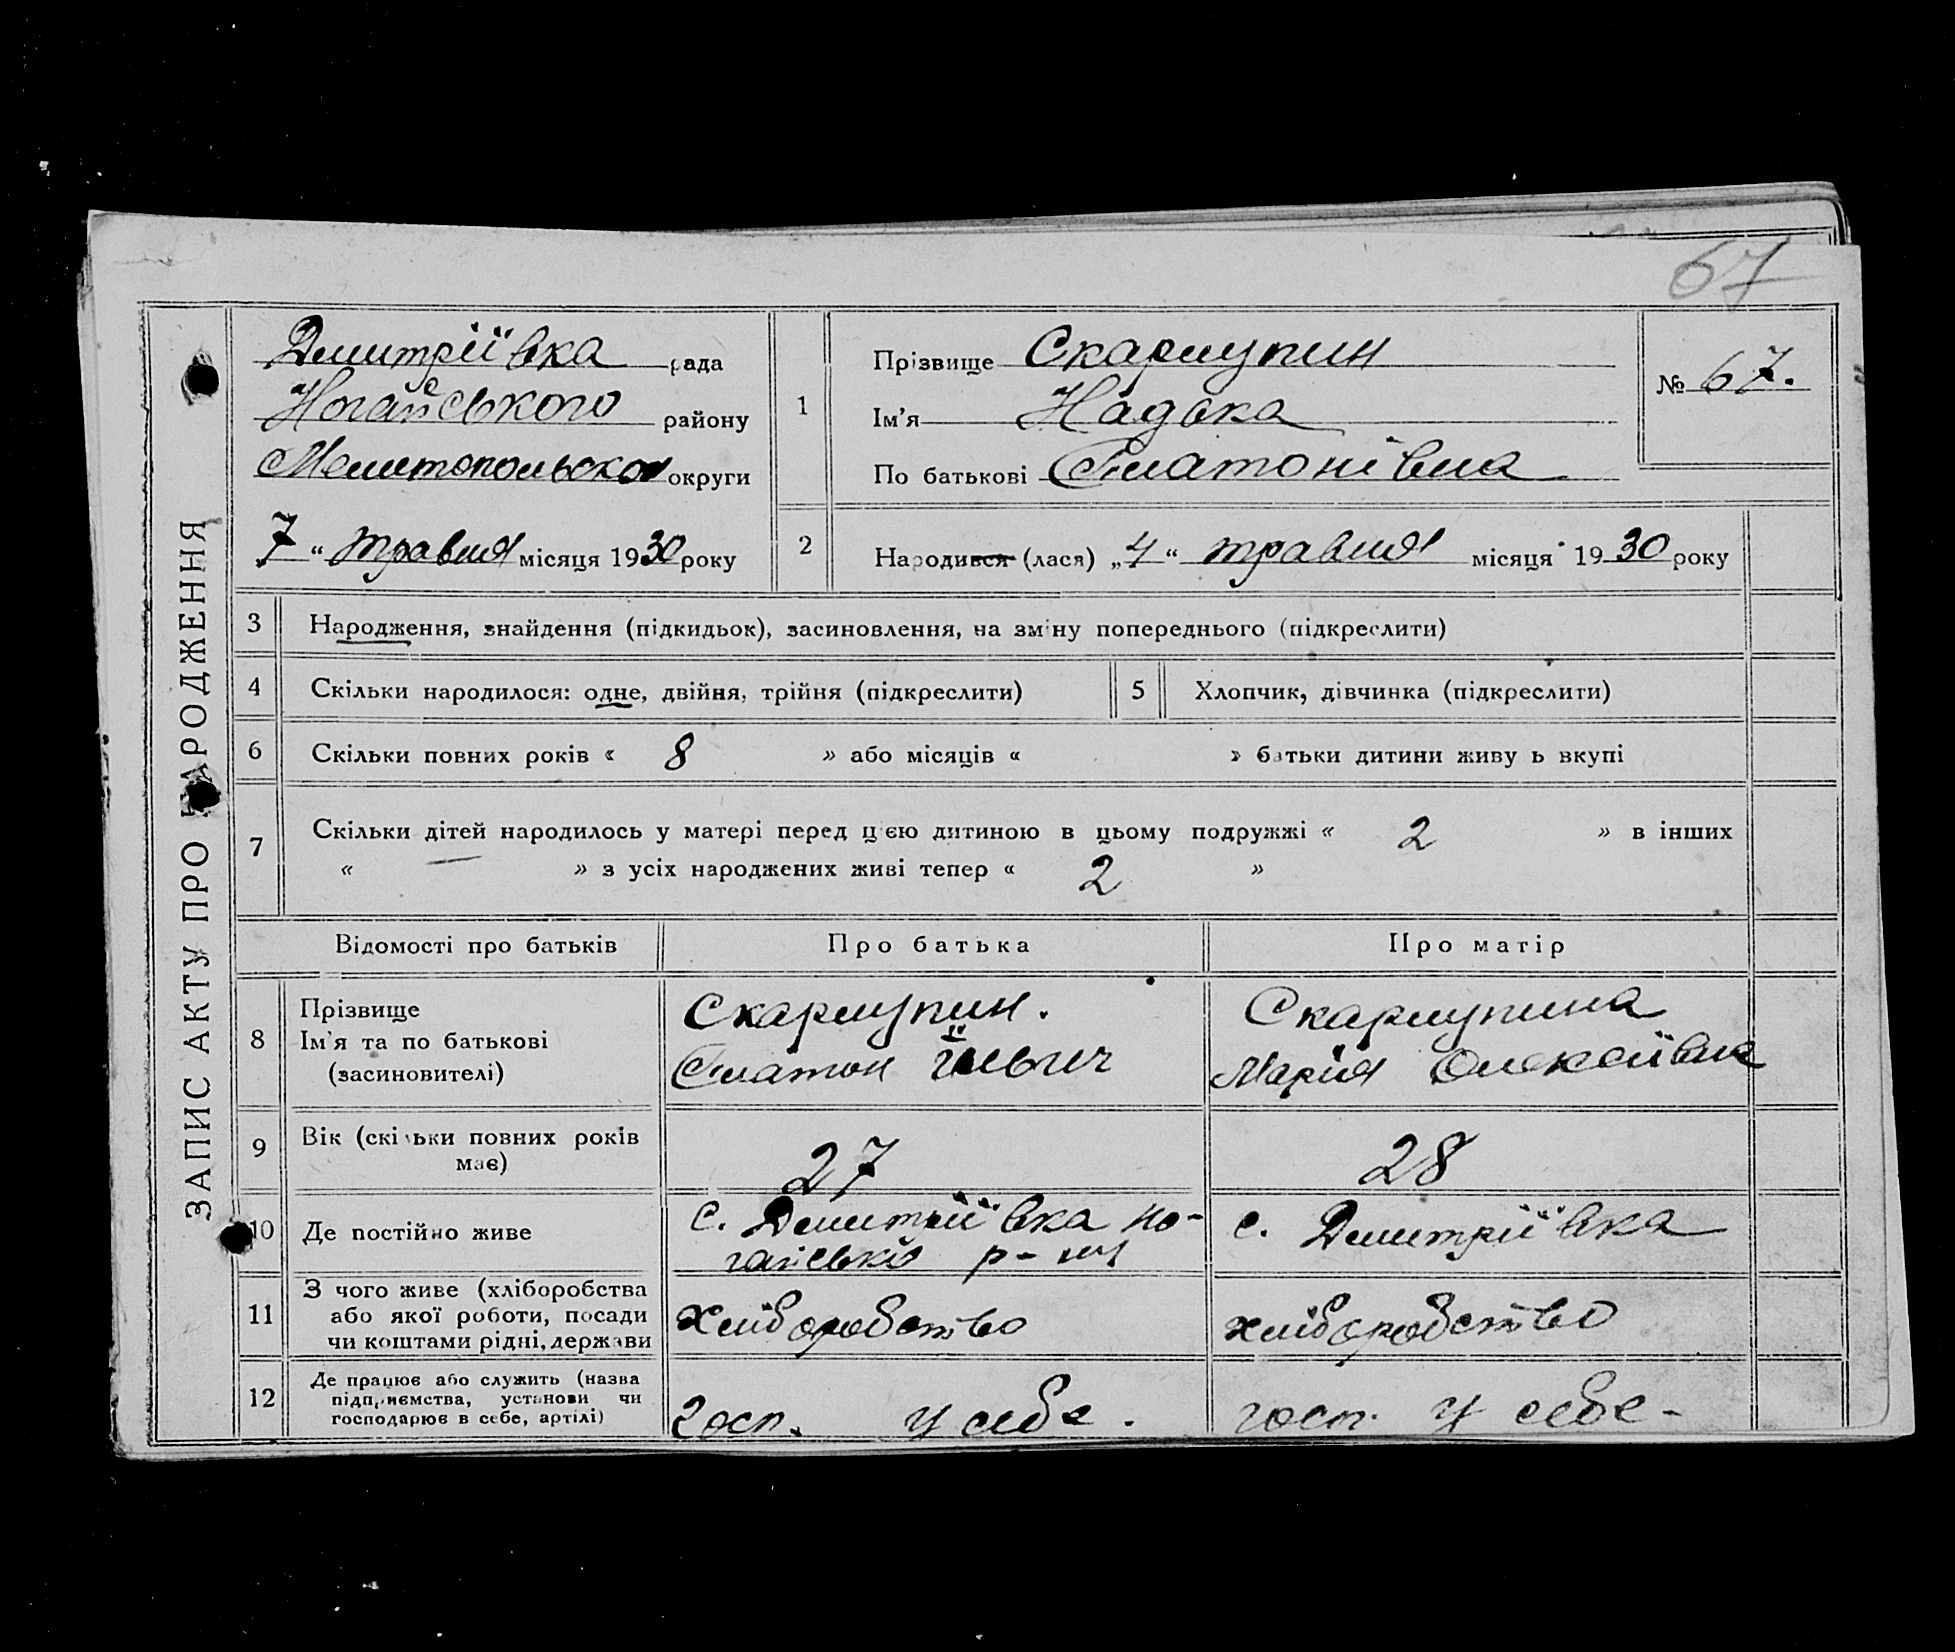 67
ЗАПИС АКТУ ПРО НАРОДЖЕННЯ
Дмитріївка рада
Ногайського району
Мелітопольсько округи
7 “ травня місяця 1930 року
1
Прізвище Скарлупин
Ім’я Надька
По батькові Платонівна
№ 67.
2
Народився (лася) „4“ травня місяця 1930 року
3 Народження, знайдення (підкидьок), засиновлення, на зміну попереднього (підкреслити)
4 Скільки народилося: одне, двійня, трійня (підкреслити) 5 Хлопчик, дівчинка (підкреслити)
6 Скільки повних років « 8 » або місяців « » батьки дитини живу ь вкупі
7 Скільки дітей народилось у матері перед цією дитиною в цьому подружжі « 2 » в інших
« — » з усіх народжених живі тепер « 2 »
Відомості про батьків Про батька Про матір
8 Прізвище
Ім’я та по батькові
(засиновителі)
Скарлупин.
Платон Ільич
Скарлупина
Марія Олексіївна
9 Вік (скільки повних років
має)
27
28
10 Де постійно живе
с. Дмитріївка Но-
гайсько р-ну
с. Дмитріївка
11 З чого живе (хліборобства
або якої роботи, посади
чи коштами рідні, держави
хліборобство
хліборобство
12 Де працює або служить (назва
підприємства, установи чи
господарює в себе, артілі)
госп. у себе.
госп. у себе-